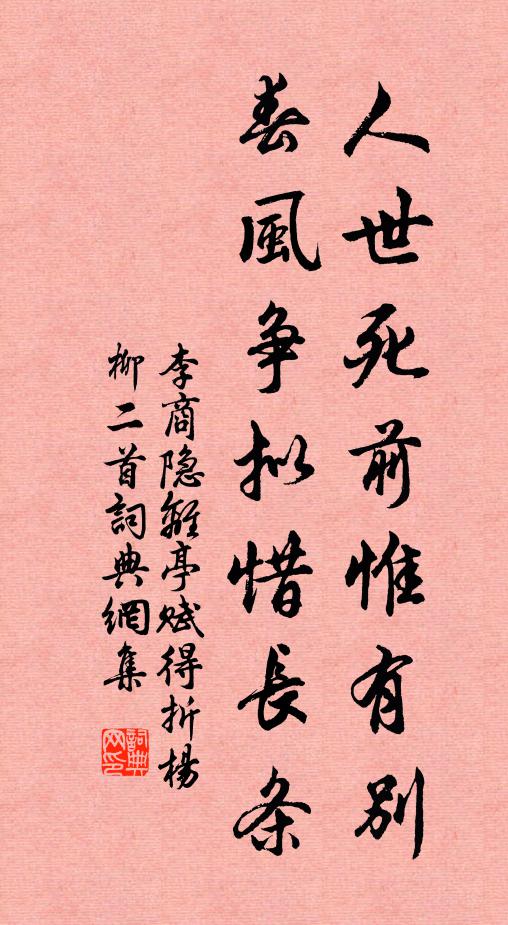 人世死前惟有别
春風争拟惜長条
李商隐離亭赋得折楊
柳二首詞典網集
詞典
网印